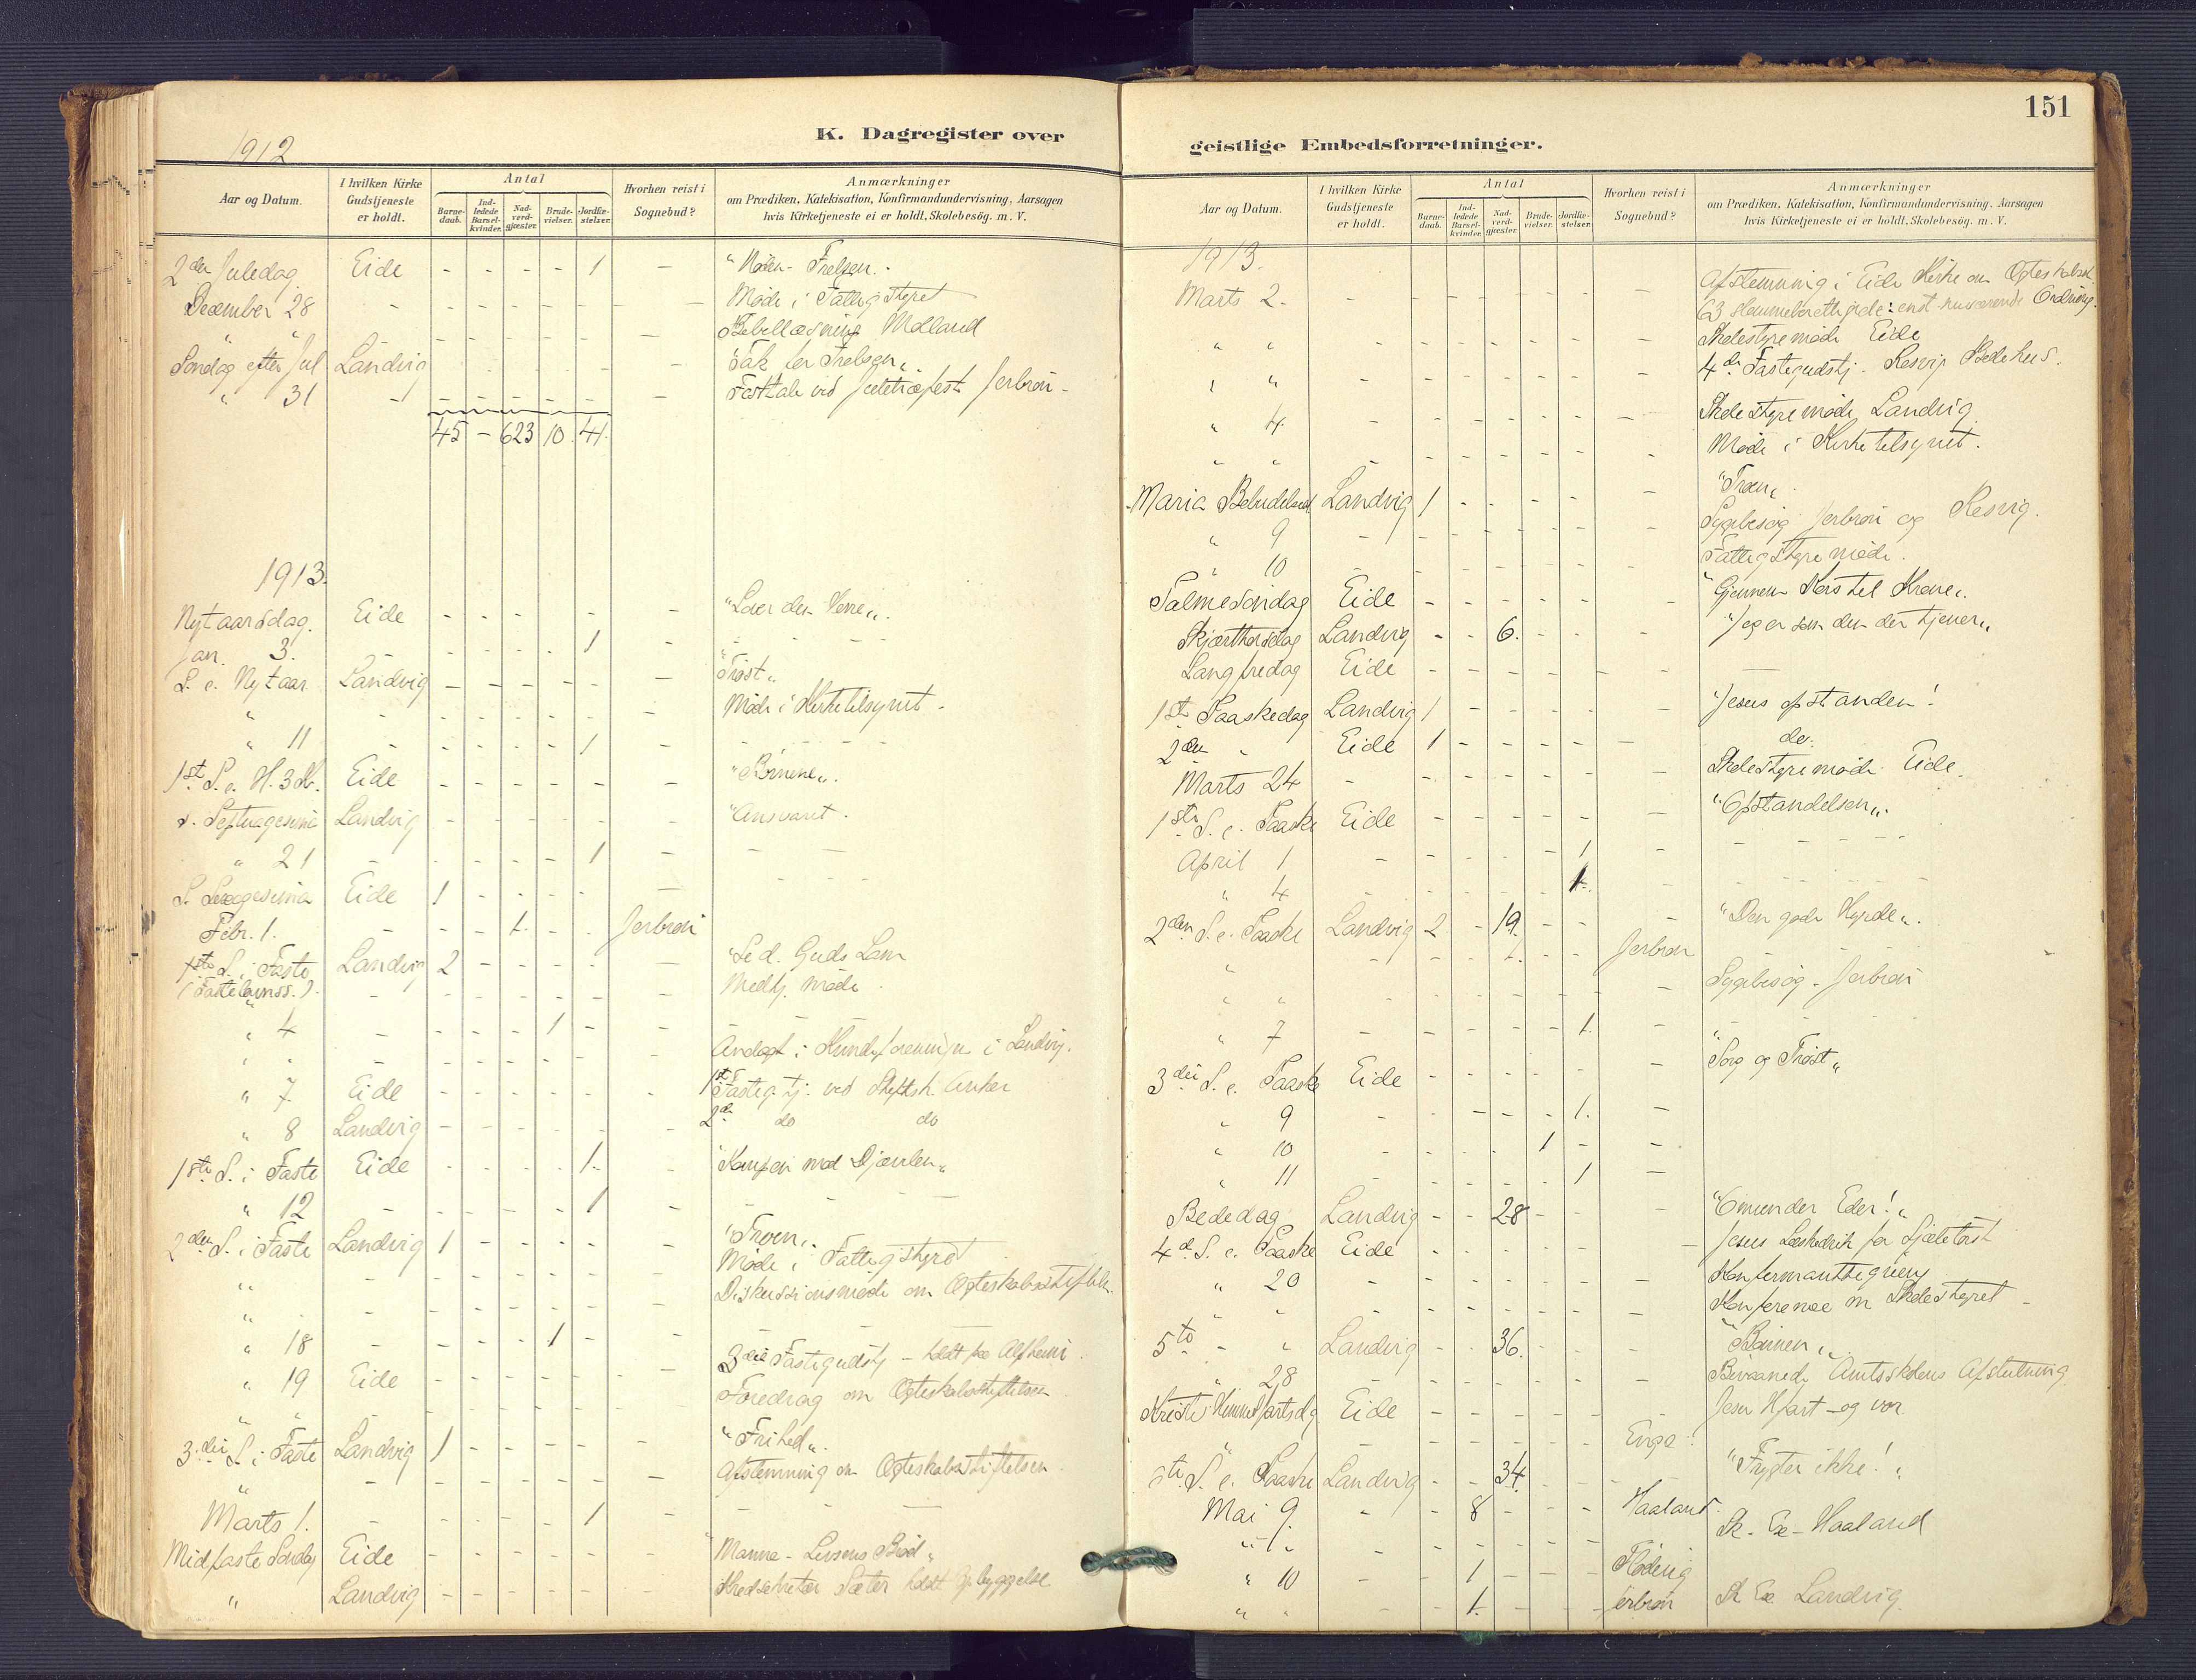 1912
K. Dagregister over
Aar og Datum.
I hvilken Kirke Gudstjeneste er holdt.
Antal
Barnedaab.
Indledede Barselkvinder.
Nadverdgjæster.
Brudevielser.
Jordfæstelser.
Hvorhen reist i Sognebud?
Anmærkninger
om Prædiken, Katekisation, Konfirmandundervisning, Aarsagen
hvis Kirketjeneste ei er holdt, Skolebesøg. m. V.
2den Juledag Eide - - - - 1 - "Nøden - Frelsen".
December 28 - - - - - - - Møde i Fattigstyret
" " - - - - - - Bibellæsning Molland
Søndag efter Jul Landvig - - - - - - "Tak for Frelsen"
" 31 - - - - - - - Festtale ved Juletræfest Jerbron -
45 - 623 10 41.
1913.
Nytaarsdag. Eide - - - - - - "Lover den Herre".
Jan. 3. - - - - - 1
S. e. Nytaar Landvig - - - - - - "Trøst"
" - - - - - - - Møde i Kirketilsynet -
" 11 - - - - - 1 - - -
1st S. e. H. 3 K. Eide - - - - - - "Børnene".
S. Septuagesima Landvig - - - - - - "Ansvaret".
" 21 - - - - - 1 - - -
S. Sexagesima Eide 1 - - - - - - - -
Febr. 1. - - - 1. - - Jerbron
1ste S. i Faste Landvig 2 - - - - - "Se d. Guds Lam
(Fastelavnss.). - - - - - - Medhj. møde.
" 4 - - - - 1 - - -
" " - - - - - - - Andagt i Kvindeforeningen i Landvig.
" 7 Eide - - - - - - 1st Fasteg.tj. ved Skolesh. Anker
" 8 Landvig - - - - - - 2d do do
1ste S. i Faste Eide - - - - 1. - "Kampen mod Djævelen"
" 12 - - - - - 1 - - -
2den S. i Faste Landvig 1 - - - - - "Troen".
" - - - - - - - Møde i Fattigstyret
" - - - - - - - Diskussionsmøde om Ægteskabsstiftelsen
" 18 - - - - 1 - - -
" 19 Eide - - - - - - 3die Fastegudstj - holdt
" " - - - - - - Foredrag om Ægteskabsstiftelsen
3die S. i Faste Landvig 1 - - - - - "Frihed".
" - - - - - - - Afstemning om Ægteskabsstiftelsen
Marts 1. - - - - - 1 - - -
Midfaste Søndag Eide - - - - - - "Manna - Livsens Brød"
" Landvig - - - - - - Kredssekretær Sæter holdt Opbyggelse
151
geistlige Embedsforretninger.
Aar og Datum.
I hvilken Kirke Gudstjeneste er holdt.
Antal
Barnedaab.
Indledede Barselkvinder.
Nadverdgjæster.
Brudevielser.
Jordfæstelser.
Hvorhen reist i Sognebud?
Anmærkninger
om Prædiken, Katekisation, Konfirmandundervisning, Aarsagen
hvis Kirketjeneste ei er holdt, Skolebesøg. m. V.
1913.
Marts 2. - - - - - - - Afstemning i Eide Kirke om Ægteskabsst.
63 stemmeberettigede: nuværende Ordning.
" " - - - - - - Skolestyremøde Eide
" " - - - - - - 4de Fastegudstj. Resvig Bedehus.
" 4. - - - - - - - Skolestyremøde, Landvig
" " - - - - - - - Møde i Kirketilsynet.
Maria Bebudelsesd. Landvig 1 - - - - - "Troen".
" 9 - - - - - - - Sygebesøg Jerbron og Resvig.
" 10 - - - - - - - Fattigstyremøde.
Palmesøndag Eide - - - - - - "Gjennem Kors til Krone".
Skjærthorsdag Landvig - - 6. - - - "Jeg er som den der tjener"
Langfredag Eide - - - - - -
1ste Paaskedag Landvig 1 - - - - - "Jesus opstanden!
2den " Eide 1 - - - - - do.
Marts 24 - - - - - - - Skolestyremøde Eide.
1ste S. e. Paaske Eide - - - - - - "Opstandelsen".
April 1 - - - - - 1 - - - -
" 4 - - - - - 1. - - - -
2den S. e. Paaske Landvig 2 - 19. - - - "Den gode Hyrde".
" - - - 1. - - Jerbron
" " - - - - - - Sygebesøg - Jerbron
" 7 - - - - - 1. - - - -
3die S. e. Paaske Eide - - - - - - "Sorg og Trøst"
" 9 - - - - - 1. -
" 10 - - - - 1 - -
" 11 - - - - - 1 -
Bededag Landvig - - 28 - - - "Omvender Eder!"
4de S. e. Paaske Eide - - - - - - Jesus Læskedrik for Sjæletørst
" 20 - - - - - - - Konfermanttegning
" " - - - - - - - Konferense m Skolestyret -
5te - " Landvig - - 36. - - - "Bønnen".
" 28 - - - - - - - Bivaanede Amtsskolens Afslutning
Kristi Himmelfartsdg Eide - - - - - - Jesu Hjfart - og vor
" - - - - - - Enge
6te S. e. Paaske Landvig - - 34. - - - "Frygter ikke!"
Mai 9. - - 8 - - - Haaland.
" " - - - - - - Sk. Ex - Haaland
" 10 - - 1 - - - Flødevig
" " - - 1. - - - Jerbron Sk Ex Landvig.